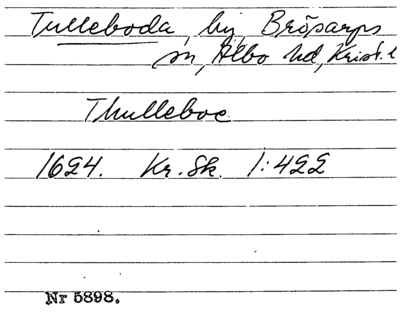 Tulleboda, by, Brösarps
sn, Albo hd, Krist. l
Thulleboe
1624. Kr. Sk. 1:422
Nr 5898.